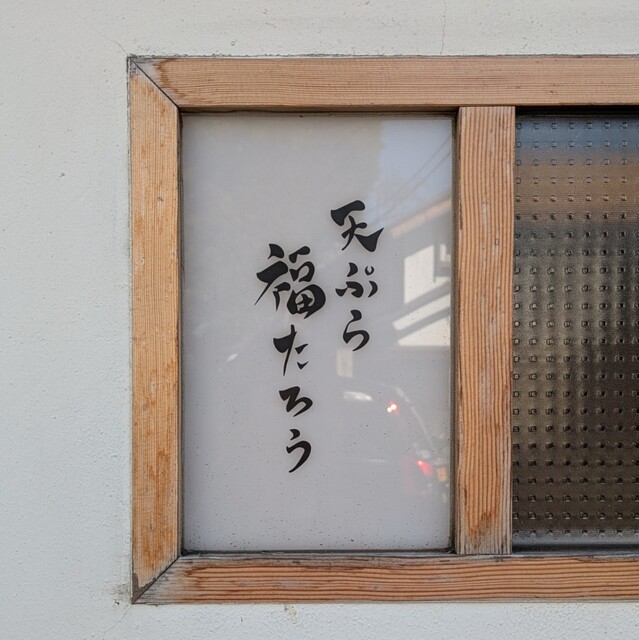 天ぷら
福たろう